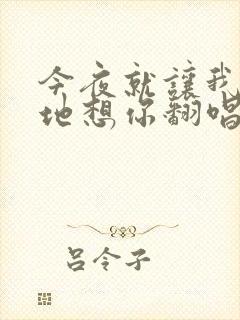 今夜就讓我
地想你翻唱
吕令子